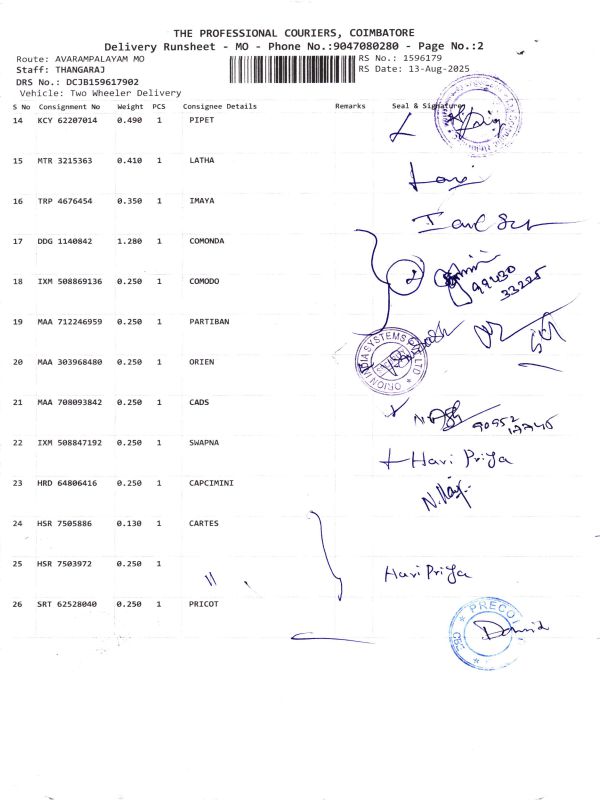 THE PROFESSIONAL COURIERS, COIMBATORE
Delivery Runsheet - MO - Phone No.:9047080280 - Page No.:2
Route: AVARAMPALAYAM MO
RS No.: 1596179
Staff: THANGARAJ
RS Date: 13-Aug-2025
DRS No.: DCJB159617902
Vehicle: Two Wheeler Delivery
S No Consignment No Weight PCS Consignee Details Remarks Seal & Signature
14 KCY 62207014 0.490 1 PIPET
15 MTR 3215363 0.410 1 LATHA
16 TRP 4676454 0.350 1 IMAYA
17 DDG 1140842 1.280 1 COMONDA
18 IXM 508869136 0.250 1 COMODO
99430
33225
19 MAA 712246959 0.250 1 PARTIBAN
20 MAA 303968480 0.250 1 ORIEN
ORION INDIA SYSTEMS LTD
21 MAA 708093842 0.250 1 CADS
22 IXM 508847192 0.250 1 SWAPNA
Hari Priya
23 HRD 64806416 0.250 1 CAPCIMINI
24 HSR 7505886 0.130 1 CARTES
25 HSR 7503972 0.250 1
Hari Priya
26 SRT 62528040 0.250 1 PRICOT
PRECOT